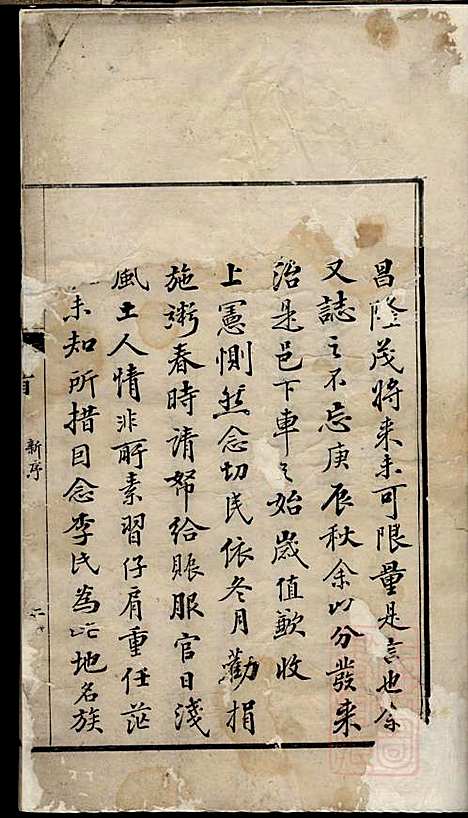 昌隆茂將来未可限量是言也余
又誌之不忘庚辰秋余以分發来
治是邑下車之始歲值歉收
上憲惻然念切民依冬月勸捐
施粥春時請帑給賑服官日淺
風土人情非所素習仔肩重任茫
未知所措因念李氏為此地名族
首
新序
二